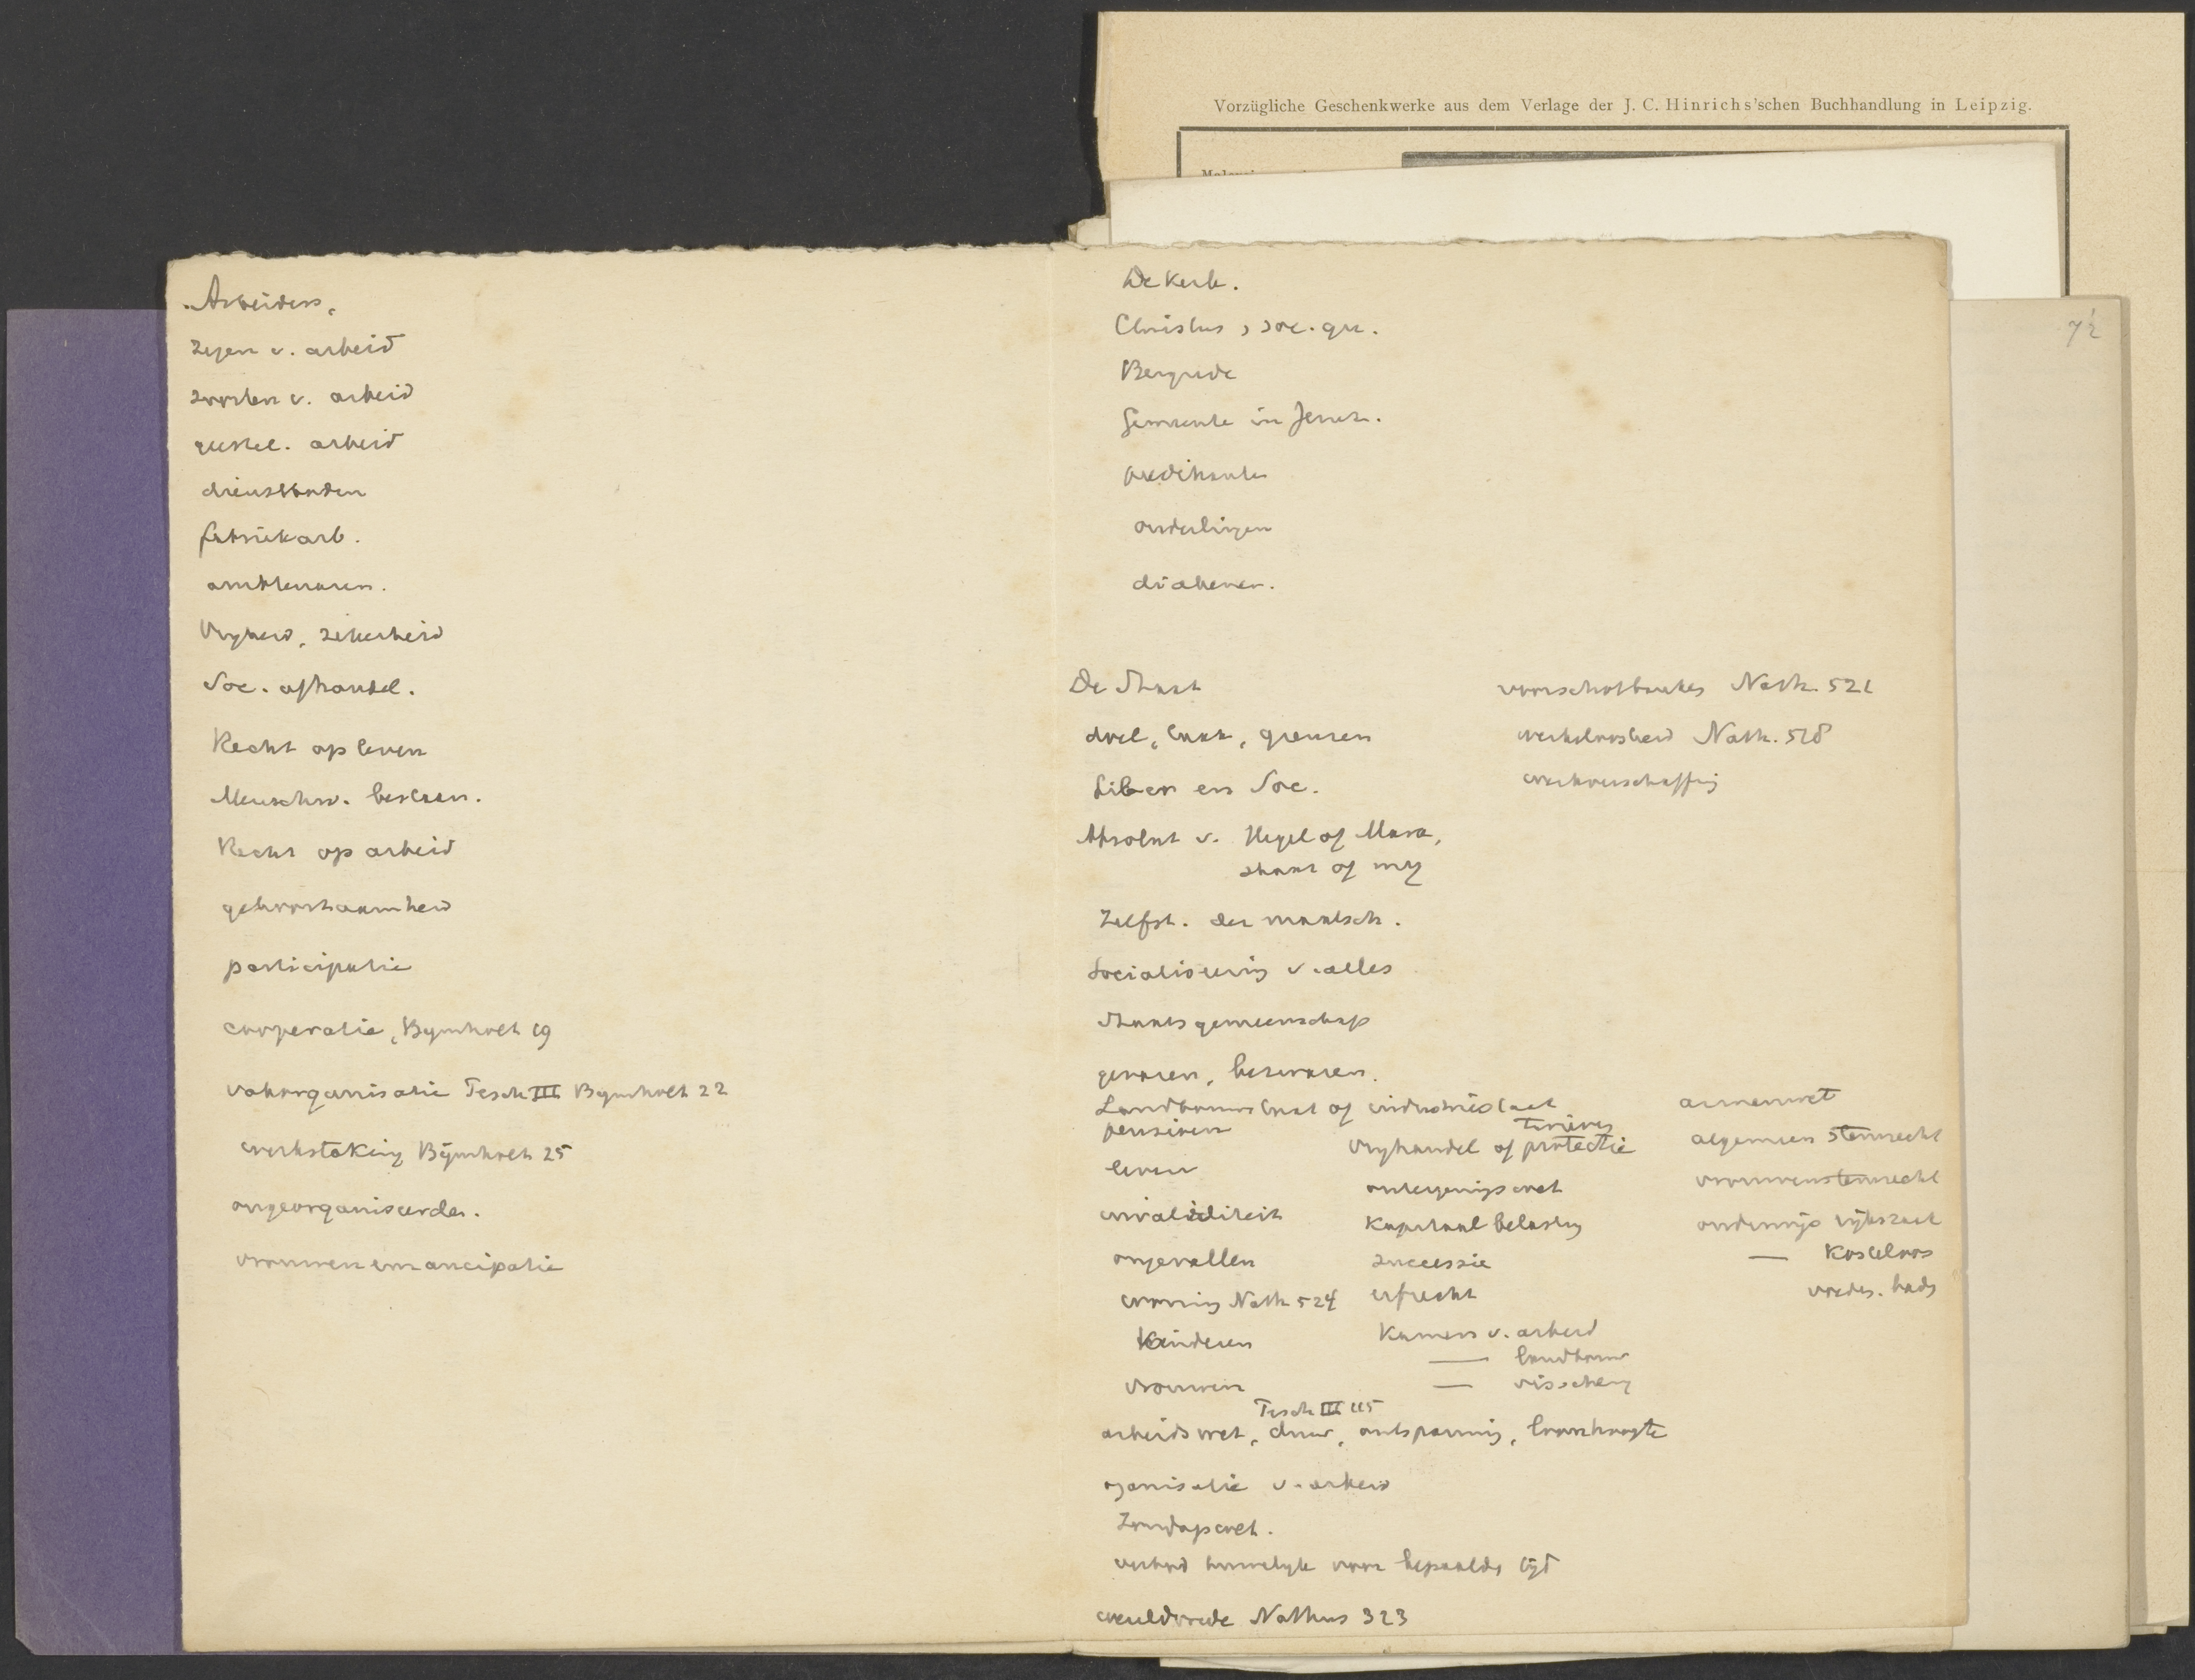 Vorzügliche Geschenkwerke aus dem Verlage der J. C. Hinrichs'schen Buchhandlung in Leipzig.
7½
Arbeiders,
zegen v. arbeid
soorten v. arbeid
geestel. arbeid
dienstboden
fabriekarb.
ambtenaren.
Vryheid, zekerheid
Soc. afhankel.
Recht op leven
Menschw. bestaan.
Recht op arbeid
gehoorzaamheid
participatie
coöperatie, Bymholt 19
vakorganisatie Tesch III Bymholt 22
werkstaking Bymholt 25
ongeorganiseerden.
vrouwenemancipatie
De Kerk.
Christus, soc. qu.
Bergrede
Gemeente in Jeruz.
predikanten
ouderlingen
diakenen.
De Staat
doel, taak, grenzen
Liber en Soc.
Absolut v. Hegel of Marx,
staat of mij
Zelfst. der maatsch.
Socialisering v. alles
Staatsgemeenschap
gevaren, bezwaren.
Landbouwstaat of industriestaat
pensioen
leven
invaliditeit
ongevallen
woning Nath 524
Kinderen
vrouwen
tarieven
vryhandel of protectie
onteigenings wet
Kapitaal belasting
successie
erfrecht
Kamers v. arbeid
— landbouw
— visschery
voorschotbanken Nath. 521
werkeloosheid Nath. 518
werkverschaffing
armenwet
algemeen stemrecht
vrouwenstemrecht
onderwijs rijkszaak
— Kosteloos
Tesch III 115
arbeidswet, duur, ontspanning, loonshoogte
organisatie v. arbeid
Zondagswet.
verbod huwelyk voor bepaalde tijd
wereldvrede Nathus 323